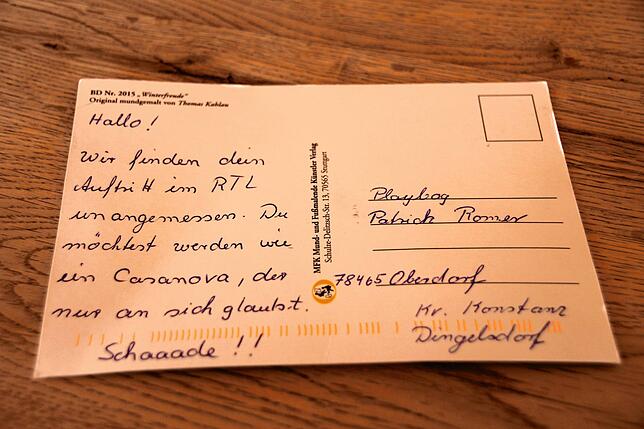 BD Nr. 2015 „Winterfreude"
Original mundgemalt von Thomas Kahlau
Hallo!
Wir finden dein
Auftritt im RTL
unangemessen. Du
möchtest werden wie
ein Casanova, der
nur an sich glaubt.
Schaaade!!
MFK Mund- und Fußmalende Künstler Verlag
Schulze-Delitzsch-Str. 13, 70565 Stuttgart
Playboy
Patrick Romer
78465 Oberdorf
Kr. Konstanz
Dingelsdorf